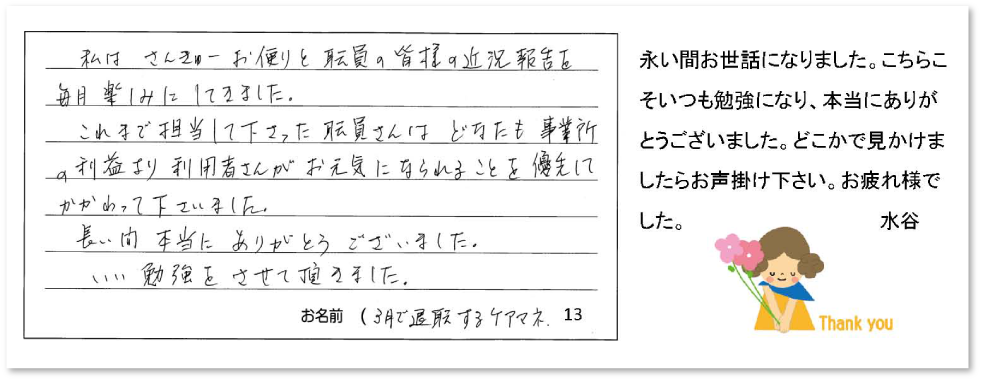 私は さんきゅーお便りと 職員の皆様の近況報告を
毎月楽しみにしてきました。
これまで担当して下さった職員さんは どなたも 事業所
の利益より 利用者さんが お元気になられることを優先して
かかわって下さいました。
長い間 本当に ありがとう ございました。
いい 勉強を させて頂きました。
お名前 (3月で退職するケアマネ. 13
永い間お世話になりました。こちらこ
そいつも勉強になり、本当にありが
とうございました。どこかで見かけま
したらお声掛け下さい。お疲れ様で
した。 水谷
Thank you